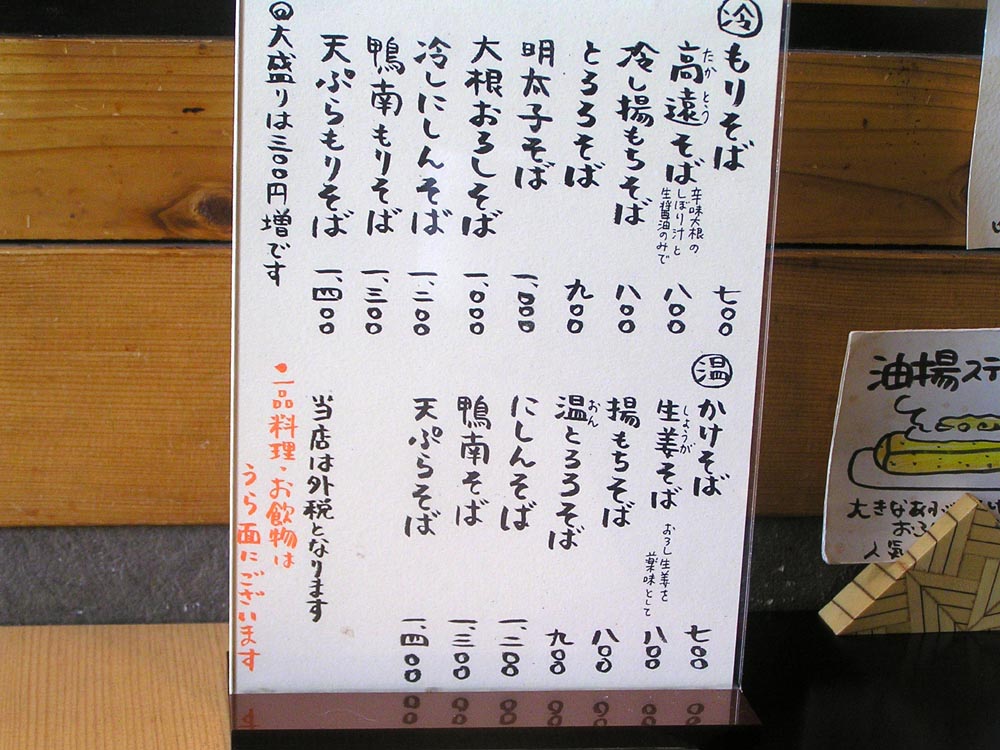 冷
もりそば 七〇〇
高遠そば 八〇〇
たかとう
辛味大根の
しぼり汁と
生醤油のみで
冷し揚もちそば 八〇〇
とろろそば 九〇〇
明太子そば 一、〇〇〇
大根おろしそば 一、〇〇〇
冷しにしんそば 一、二〇〇
鴨南もりそば 一、三〇〇
天ぷらもりそば 一、四〇〇
◎大盛りは三〇〇円増です
温
かけそば 七〇〇
生姜そば 八〇〇
しょうが
おろし生姜を
薬味として
揚もちそば 八〇〇
温とろろそば 九〇〇
おん
にしんそば 一、二〇〇
鴨南そば 一、三〇〇
天ぷらそば 一、四〇〇
当店は外税となります
●一品料理・お飲物は
うら面にございます
油揚ステ
大きなあぶ
おろ
人気